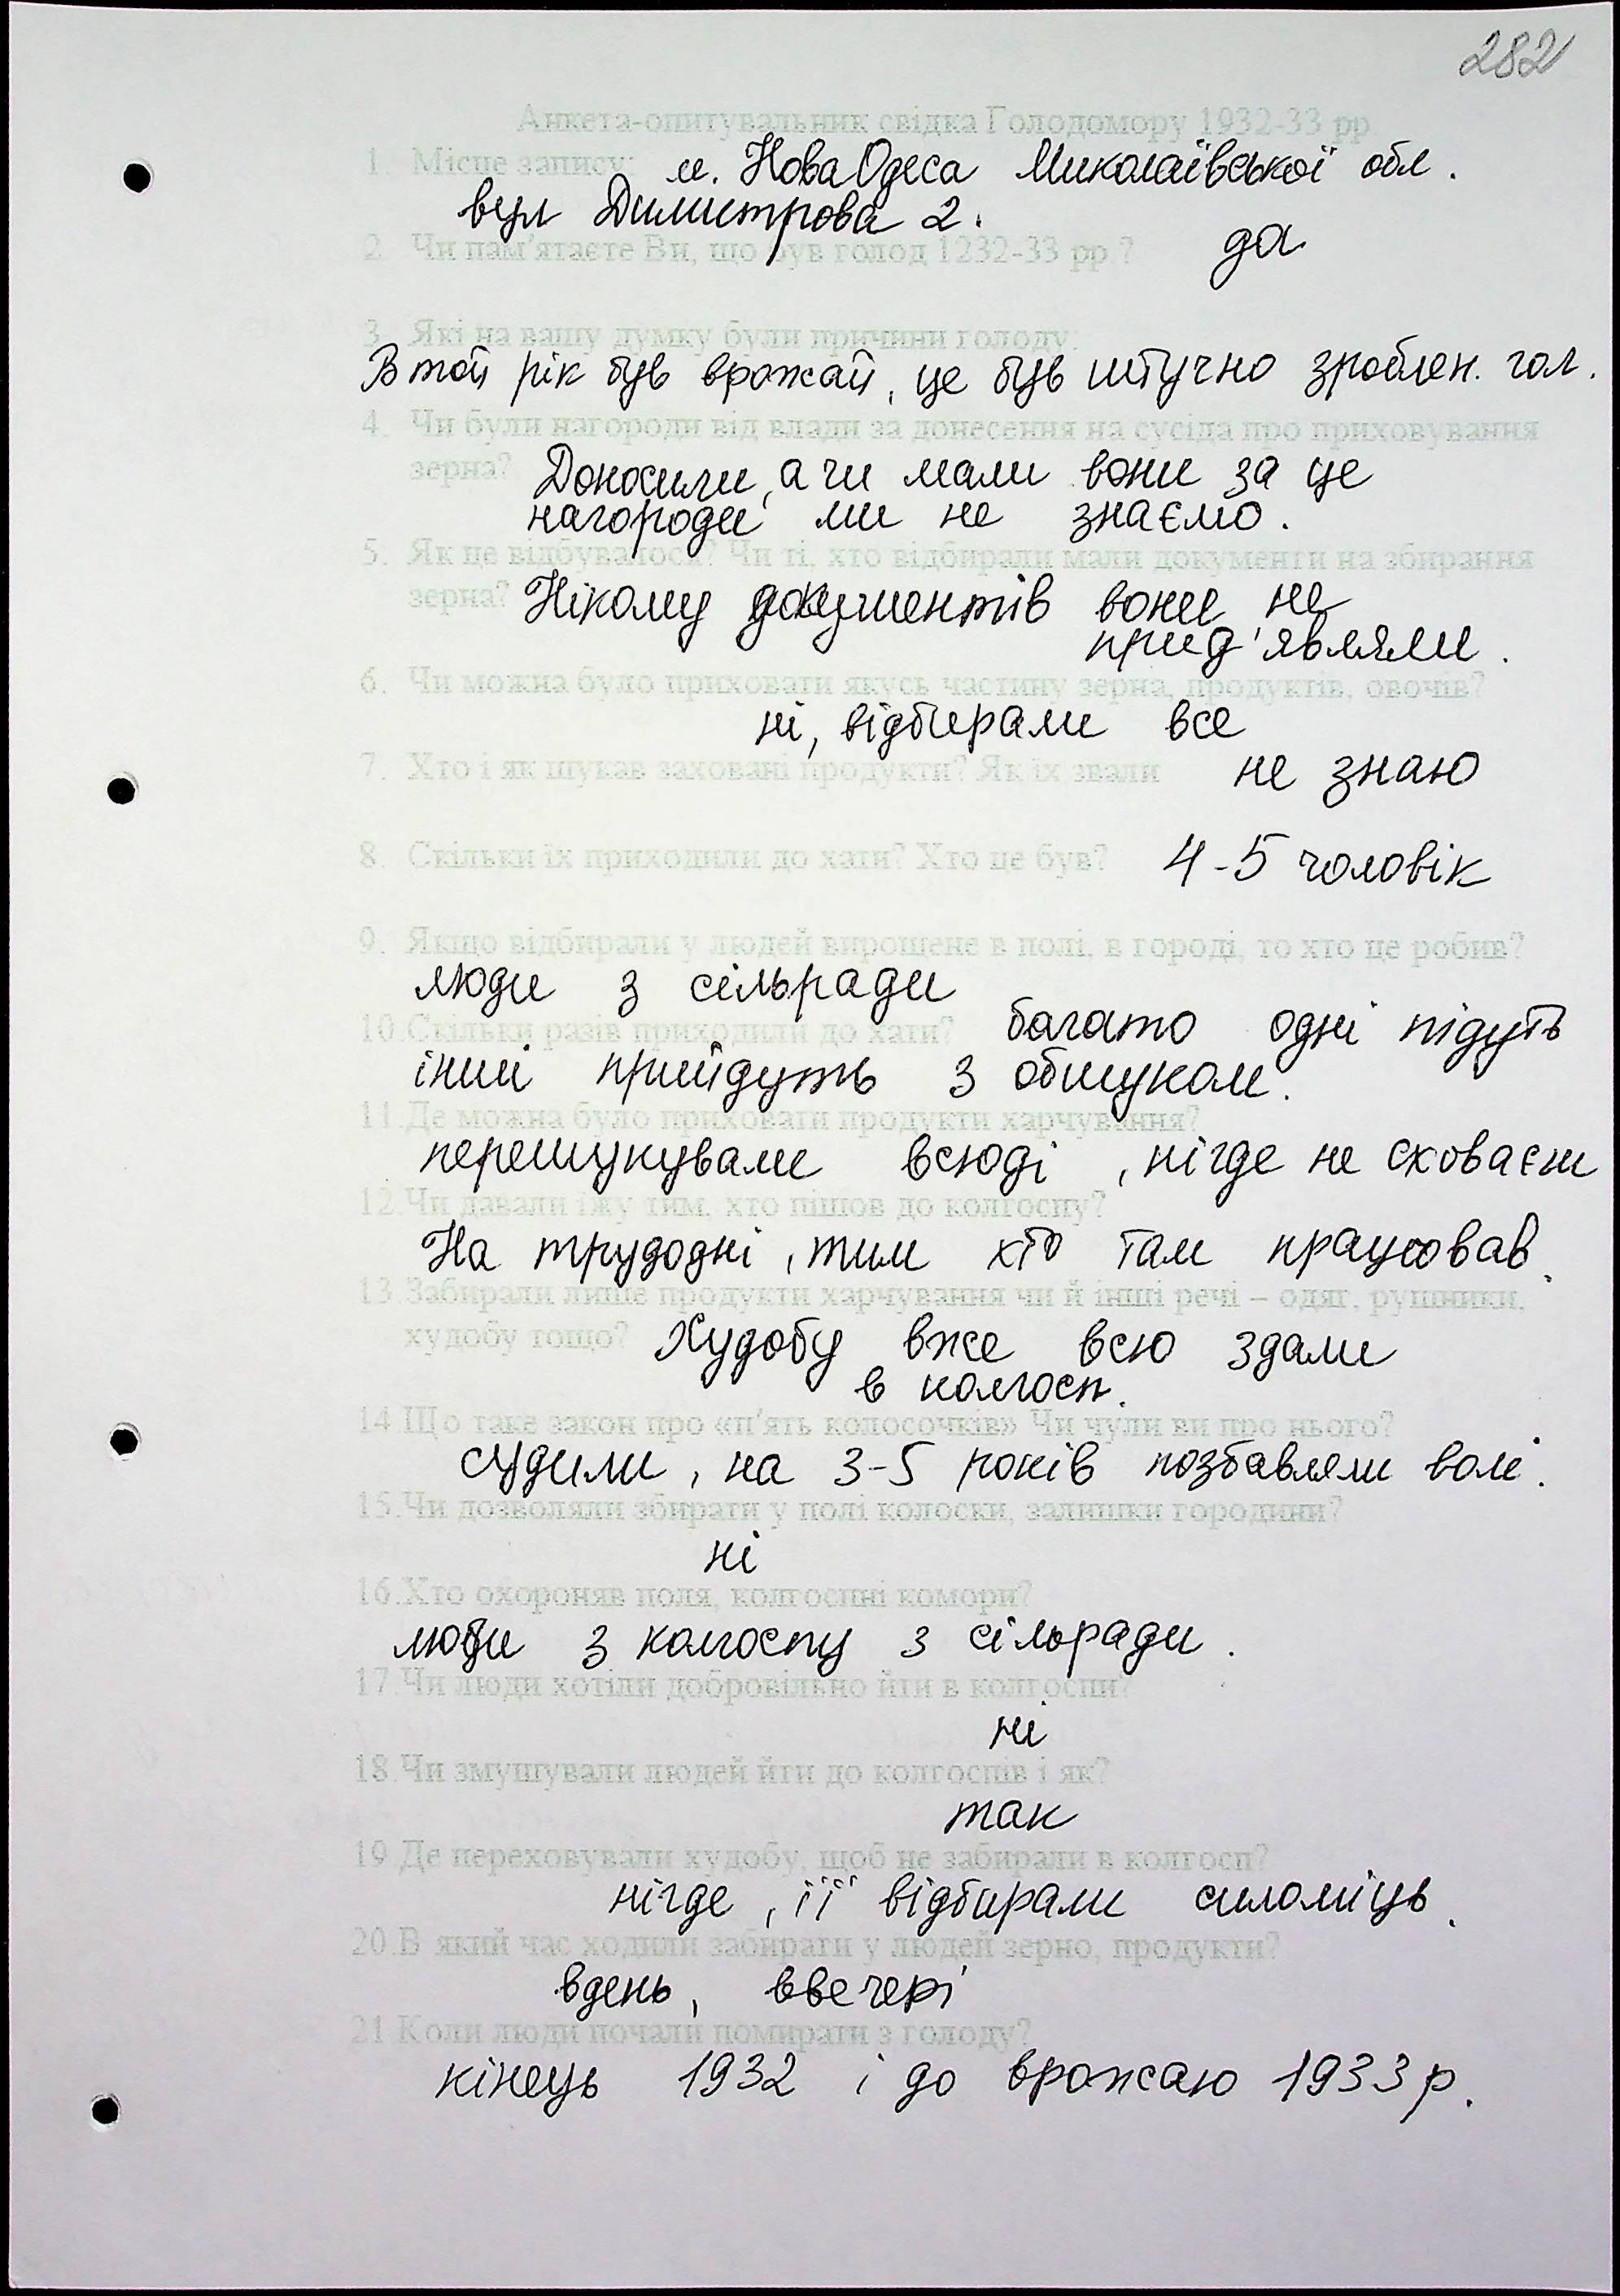 282
Анкета-опитувальник свідка Голодомору 1932-33 рр.
1. Місце запису: м. Нова Одеса Миколаївської обл.
вул Димитрова 2.
2. Чи пам'ятаєте Ви, що був голод 1232-33 рр.? да
3. Які на вашу думку були причини голоду:
В той рік був врожай, це був штучно зроблен. гол.
4. Чи були нагороди від влади за донесення на сусіда про приховування
зерна? Доносили, а чи мали вони за це
нагороди ми не знаємо.
5. Як це відбувалося? Чи ті, хто відбирали мали документи на збирання
зерна? Нікому документів вони не
пред'являли.
6. Чи можна було приховати якусь частину зерна, продуктів, овочів?
ні, відбирали все
7. Хто і як шукав заховані продукти? Як їх звали не знаю
8. Скільки їх приходили до хати? Хто це був? 4-5 чоловік
9. Якщо відбирали у людей вирощене в полі, в городі, то хто це робив?
люди з сільради
10. Скільки разів приходили до хати? багато одні підуть
інші прийдуть з обшуком.
11. Де можна було приховати продукти харчування?
перешукували всюді, нігде не сховаєш
12. Чи давали їжу тим, хто пішов до колгоспу?
На трудодні, тим хто там працював.
13. Забирали лише продукти харчування чи й інші речі – одяг, рушники,
худобу тощо? Худобу вже всю здали
в колгосп.
14. Що таке закон про «п'ять колосочків» Чи чули ви про нього?
судили, на 3-5 років позбавляли волі.
15. Чи дозволяли збирати у полі колоски, залишки городини?
ні
16. Хто охороняв поля, колгоспні комори?
люди з колгоспу з сільради.
17. Чи люди хотіли добровільно йти в колгоспи?
ні
18. Чи змушували людей йти до колгоспів і як?
так
19. Де переховували худобу, щоб не забирали в колгосп?
нігде, її відбирали силоміць.
20. В який час ходили забирати у людей зерно, продукти?
вдень, ввечері
21. Коли люди почали помирати з голоду?
кінець 1932 і до врожаю 1933 р.